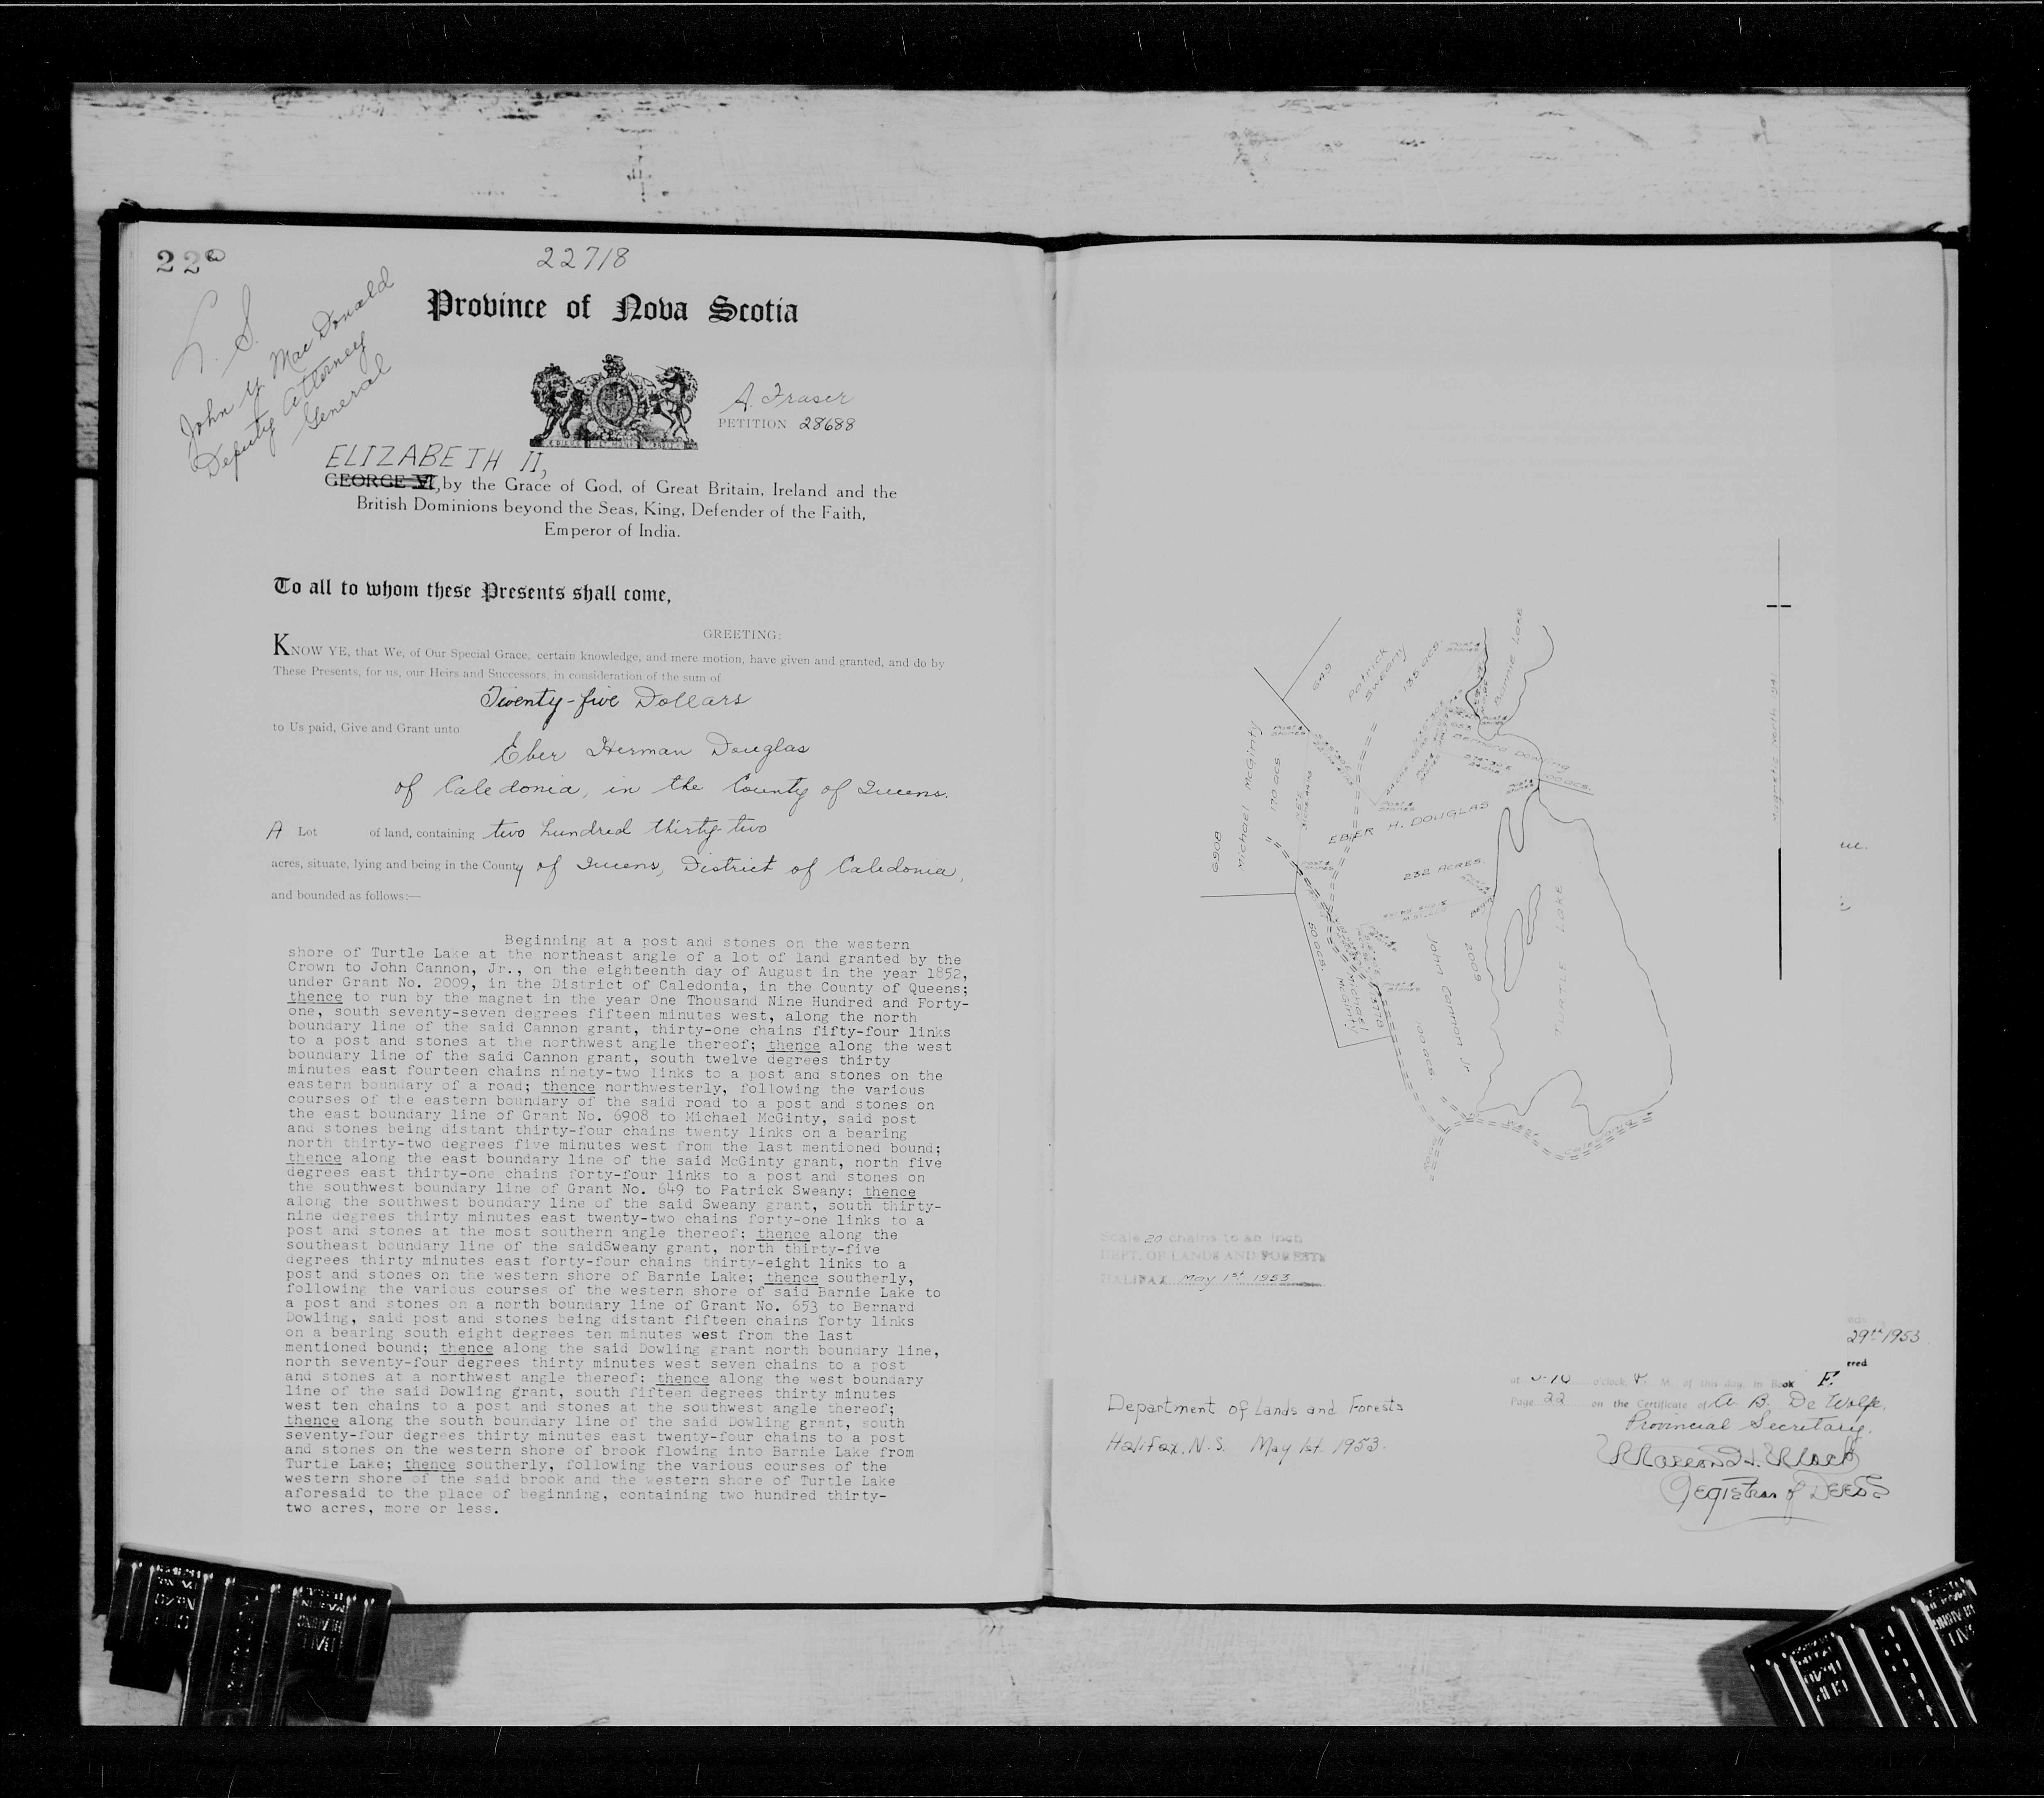 22
22718
L. S.
John Y. MacDonald
Deputy Attorney
General
Province of Nova Scotia
A. Fraser
PETITION 28688
ELIZABETH II,
GEORGE VI, by the Grace of God, of Great Britain, Ireland and the
British Dominions beyond the Seas, King, Defender of the Faith,
Emperor of India.
To all to whom these Presents shall come,
GREETING:
KNOW YE, that We, of Our Special Grace, certain knowledge, and mere motion, have given and granted, and do by
These Presents, for us, our Heirs and Successors, in consideration of the sum of
Twenty-five Dollars
to Us paid, Give and Grant unto
Eber Herman Douglas
of Caledonia, in the County of Queens.
A Lot of land, containing two hundred thirty-two
acres, situate, lying and being in the County of Queens, District of Caledonia,
and bounded as follows:—
Beginning at a post and stones on the western
shore of Turtle Lake at the northeast angle of a lot of land granted by the
Crown to John Cannon, Jr., on the eighteenth day of August in the year 1852,
under Grant No. 2009, in the District of Caledonia, in the County of Queens;
thence to run by the magnet in the year One Thousand Nine Hundred and Forty-
one, south seventy-seven degrees fifteen minutes west, along the north
boundary line of the said Cannon grant, thirty-one chains fifty-four links
to a post and stones at the northwest angle thereof; thence along the west
boundary line of the said Cannon grant, south twelve degrees thirty
minutes east fourteen chains ninety-two links to a post and stones on the
eastern boundary of a road; thence northwesterly, following the various
courses of the eastern boundary of the said road to a post and stones on
the east boundary line of Grant No. 6908 to Michael McGinty, said post
and stones being distant thirty-four chains twenty links on a bearing
north thirty-two degrees five minutes west from the last mentioned bound;
thence along the east boundary line of the said McGinty grant, north five
degrees east thirty-one chains forty-four links to a post and stones on
the southwest boundary line of Grant No. 649 to Patrick Sweany; thence
along the southwest boundary line of the said Sweany grant, south thirty-
nine degrees thirty minutes east twenty-two chains forty-one links to a
post and stones at the most southern angle thereof; thence along the
southeast boundary line of the saidSweany grant, north thirty-five
degrees thirty minutes east forty-four chains thirty-eight links to a
post and stones on the western shore of Barnie Lake; thence southerly,
following the various courses of the western shore of said Barnie Lake to
a post and stones on a north boundary line of Grant No. 653 to Bernard
Dowling, said post and stones being distant fifteen chains forty links
on a bearing south eight degrees ten minutes west from the last
mentioned bound; thence along the said Dowling grant north boundary line,
north seventy-four degrees thirty minutes west seven chains to a post
and stones at a northwest angle thereof; thence along the west boundary
line of the said Dowling grant, south fifteen degrees thirty minutes
west ten chains to a post and stones at the southwest angle thereof;
thence along the south boundary line of the said Dowling grant, south
seventy-four degrees thirty minutes east twenty-four chains to a post
and stones on the western shore of brook flowing into Barnie Lake from
Turtle Lake; thence southerly, following the various courses of the
western shore of the said brook and the western shore of Turtle Lake
aforesaid to the place of beginning, containing two hundred thirty-
two acres, more or less.
649
Patrick
Sweany
135 acs.
Barnie Lake
Magnetic North 1941
Michael McGinty
170 acs.
6908
Bernard Dowling
100 acs.
EBER H. DOUGLAS
232 ACRES.
TURTLE LAKE
80 acs.
Michael
McGinty
13770
John Cannon Jr.
2009
100 acs.
Scale 20 chains to an inch
DEPT. OF LANDS AND FORESTS
HALIFAX May 1st 1953
Department of Lands and Forests
Halifax, N.S. May 1st 1953.
29th 1953
ered
at o'clock P. M. of this day, in Book F.
Page 22 on the Certificate of A. B. DeWolfe,
Provincial Secretary.
Registrar of Deeds